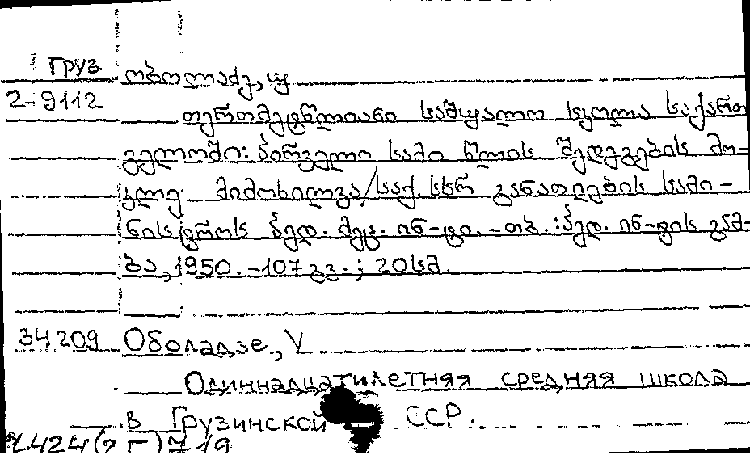 Груз ობოლაძე, უ
2-9112
თერთმეტწლიანი საშუალო სკოლა საქართ
ველოში: პირველი სამი წლის შედეგების მო-
კლე მიმოხილვა/საქ. სსრ განათლების სამი-
ნისტროს პედ. მეც. ინ-ტი. -თბ.: პედ. ინ-ტის გამ-
ბა, 1950. -107 გვ.; 20სმ.
34209 Оболадзе, У
Одиннадцатилетняя средняя школа
в Грузинской ССР.